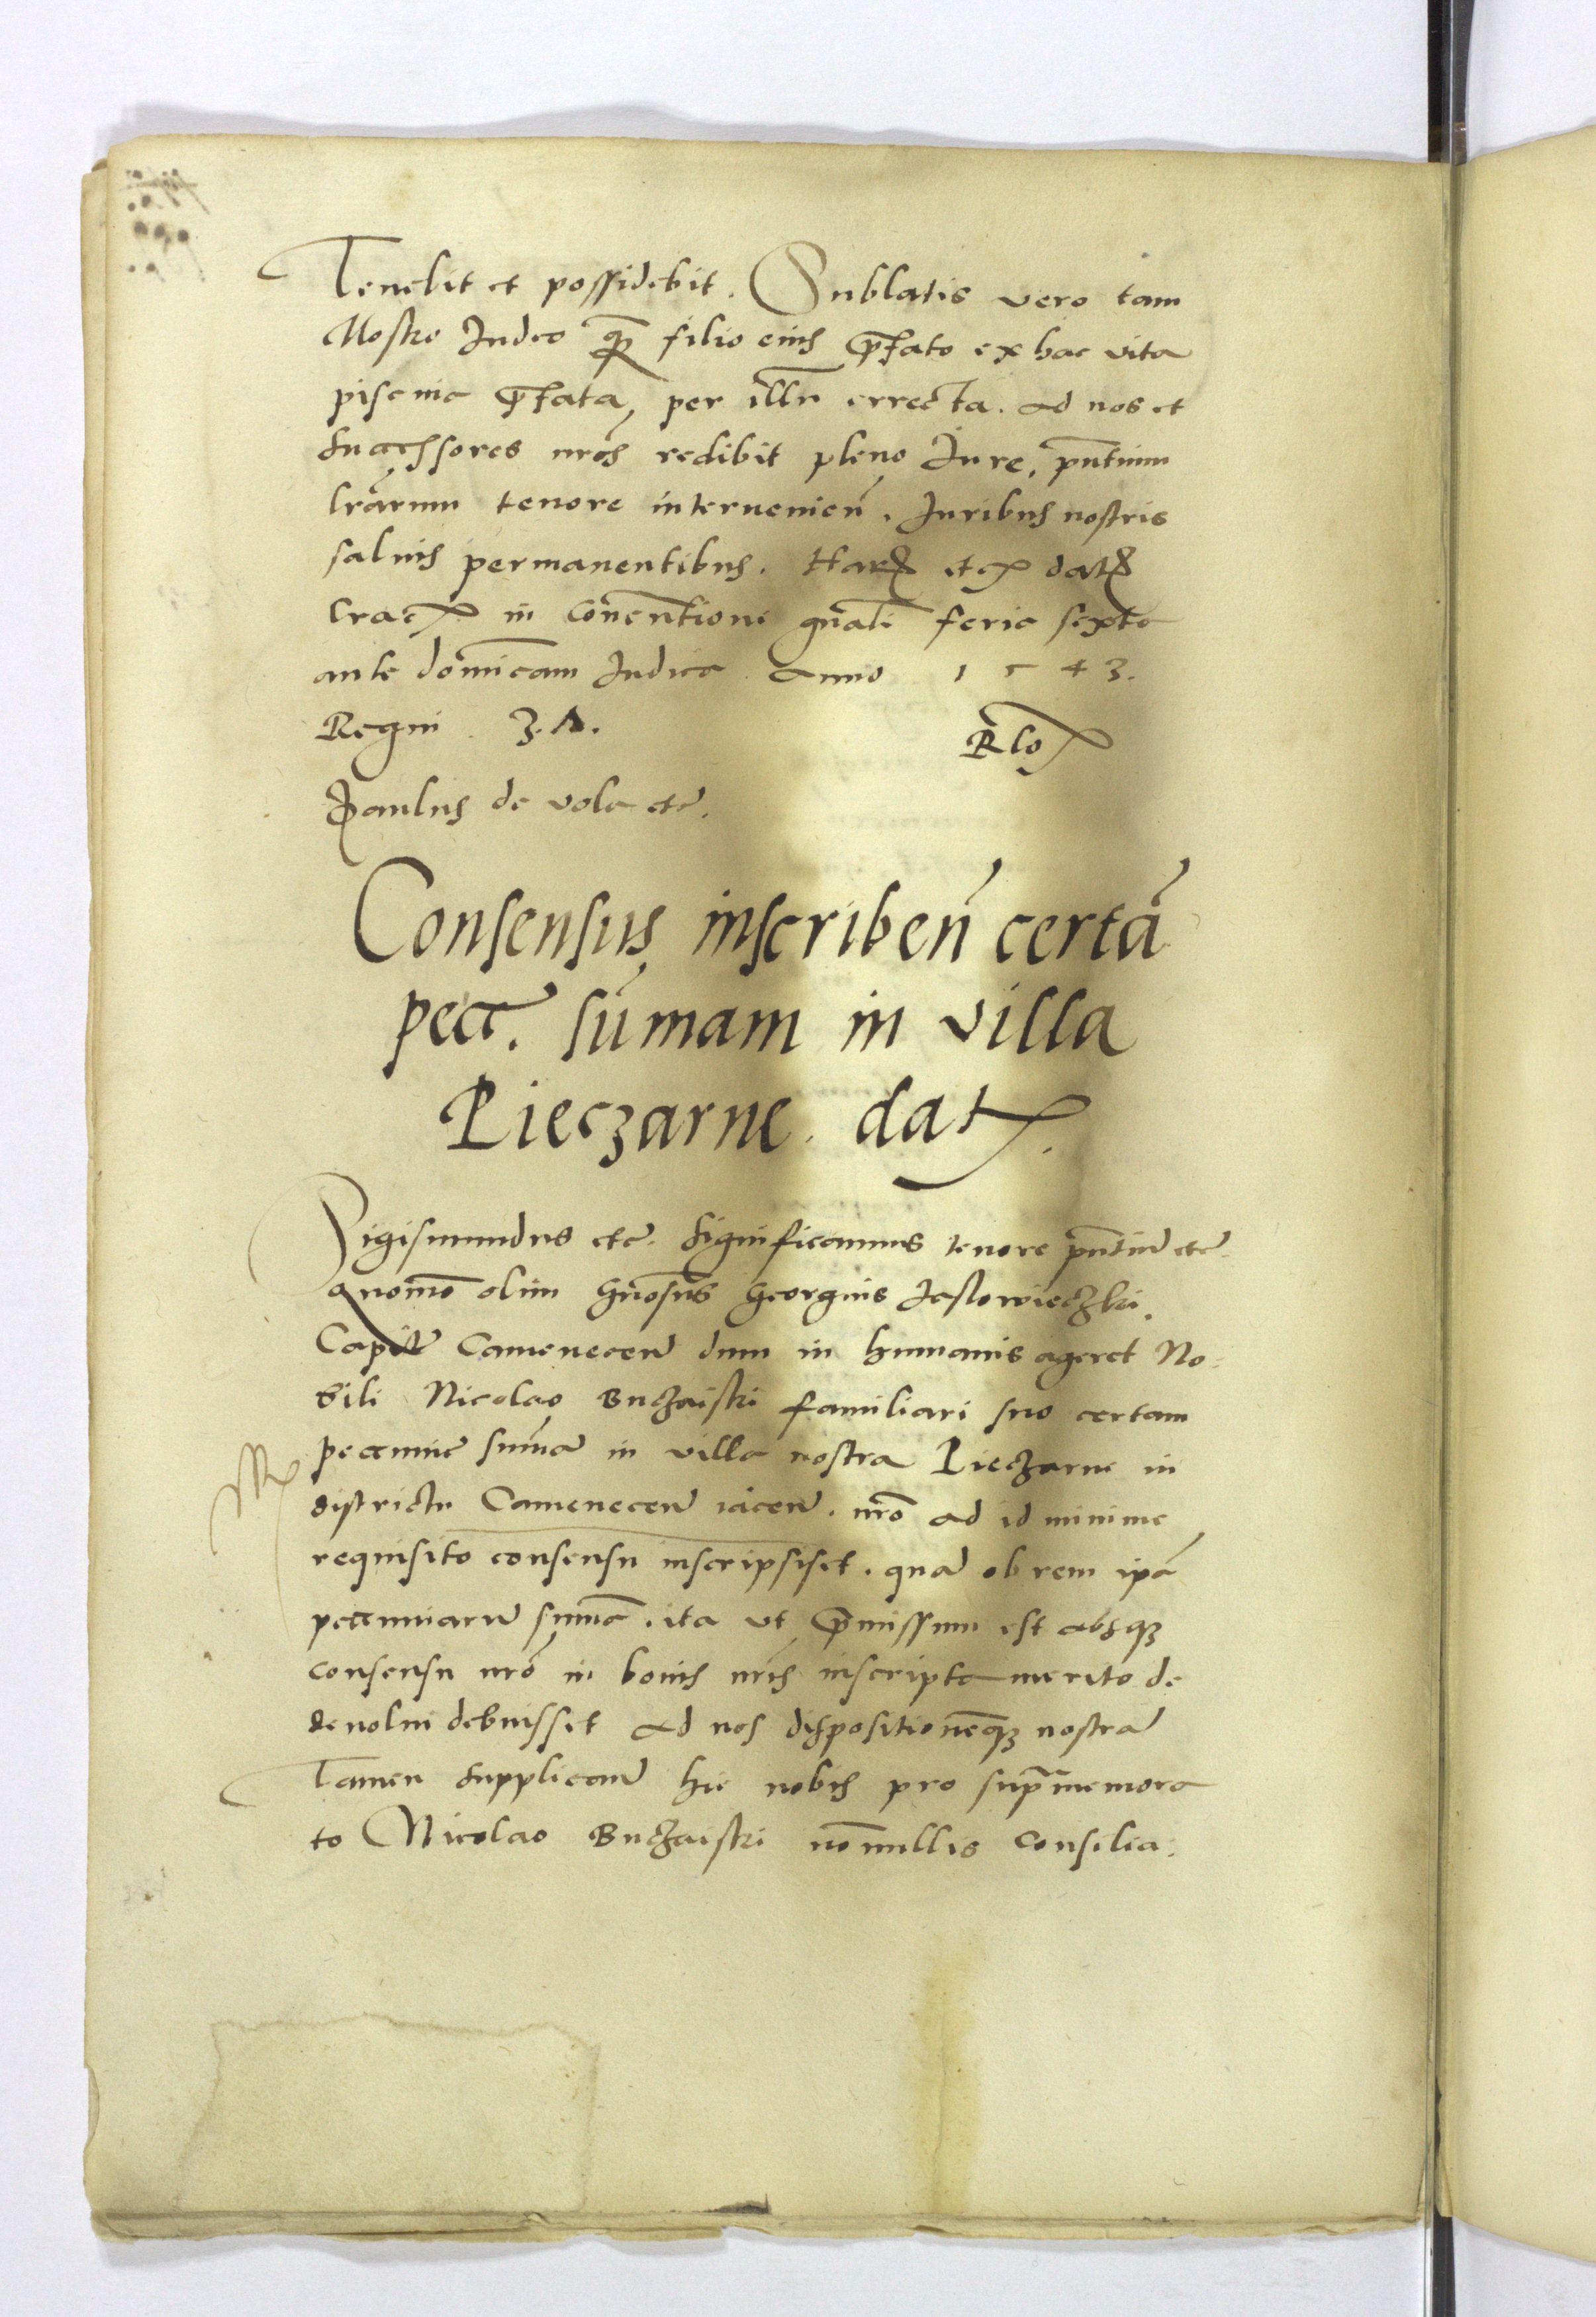 Tenebit et possidebit. Sublatis vero tam
Moszko Iudeo q̃ȝ filio eius p̃fato ex hac vita
piscina p̃fata, per illũ errecta. ad nos et
successores nrõs redibit pleno Iure, pñtium
lrãrum tenore intervenieñ. Iuribus nostris
salvis permanentibus. Harꝝ etcꝝ datꝝ
Cracꝝ in Conventione gñali feria sexta
ante dominicam Iudica anno 1543.
Regni 37.
Rloꝝ
Paulus de vola etc̃.
Consensus inscribeñ certã
pecc̃. sũmam in villa
Pieczarne. datꝝ.
Sigismundus etc̃. significamus tenore pñtiũ etc̃.
quomõ olim Gñosus Georgius Jaslowieczki.
Capite᷈ Cameneceñ dum in humanis ageret No-
bili Nicolao Buczaiski familiari suo certam
peccuniẽ sum̃ã in villa nostra Pieczarne in
districtu Cameneceñ iaceñ. nrõ ad id minime
requisito consensu inscripsiset. quã ob rem ipã
peccuniarũ sum̃a. ita ut p̃missum est absqȝ
consensu nrõ in bonis nrĩs inscripta merito de
devolvi debuisset ad nos dispositionẽqȝ nostrã
Tamen supplicañ hic nobis pro sup̃memora
to Nicolao Buczaiski nõnullis Consilia: